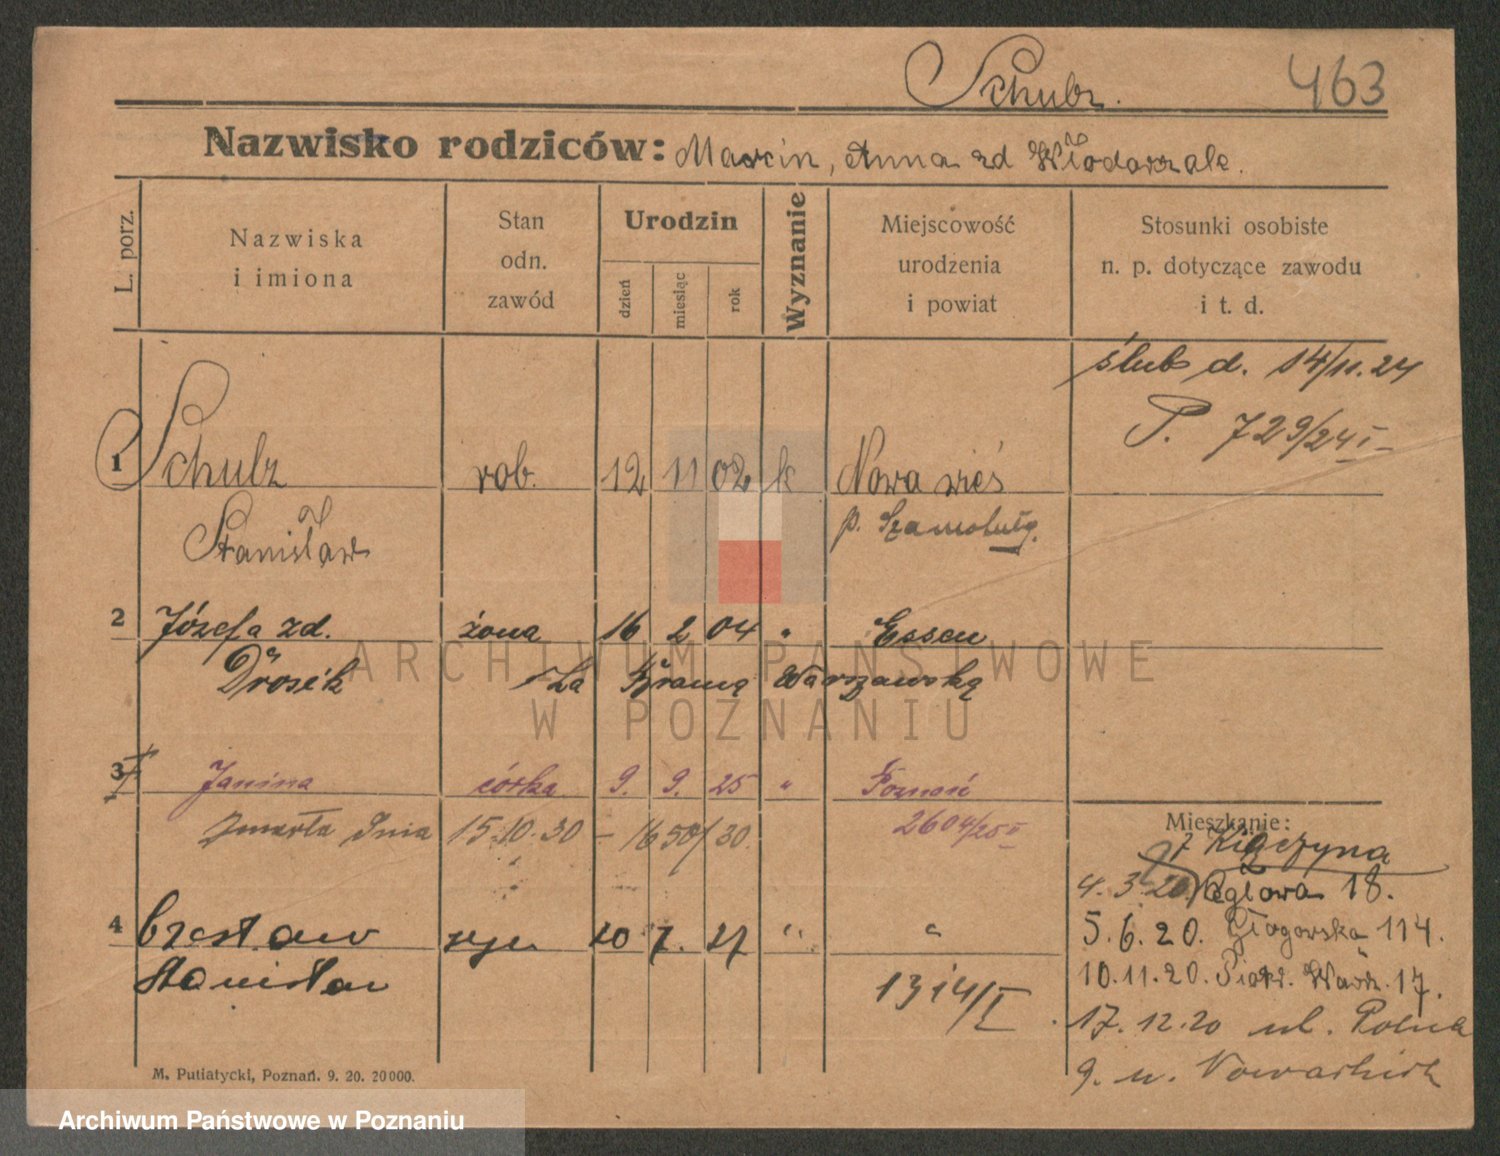 Schulz. 463
Nazwisko rodziców: Marcin, Anna zd Włodarzak.
L. porz.
Nazwiska
i imiona
Stan
odn.
zawód
Urodzin
dzień
miesiąc
rok
Wyznanie
Miejscowość
urodzenia
i powiat
Stosunki osobiste
n. p. dotyczące zawodu
i t. d.
ślub d. 14/11. 24
P. 729/24 I
1 Schulz rob. 12 11 02 k Nowa wieś
Stanisław p. Szamotuły.
2 Józefa zd. żona 16 2 04 " Essen
Drosik za Bramą Warszawską
3 Janina córka 9. 9. 25 " Poznań
zmarła dnia 15.10.30 – 1650/30. 2604/25 II
4 Czesław syn 20 7. 27 " "
Stanisław 1314/I
Mieszkanie:
z Kiączyna
4. 3. 20. 18.
5. 6. 20. Głogowska 114.
10.11.20. Piotr. Wawrz. 17.
17.12.20 ul. Polna
9. u. Nowackich
M. Putiatycki, Poznań. 9. 20. 20000.
ARCHIWUM PAŃSTWOWE
W POZNANIU
Archiwum Państwowe w Poznaniu